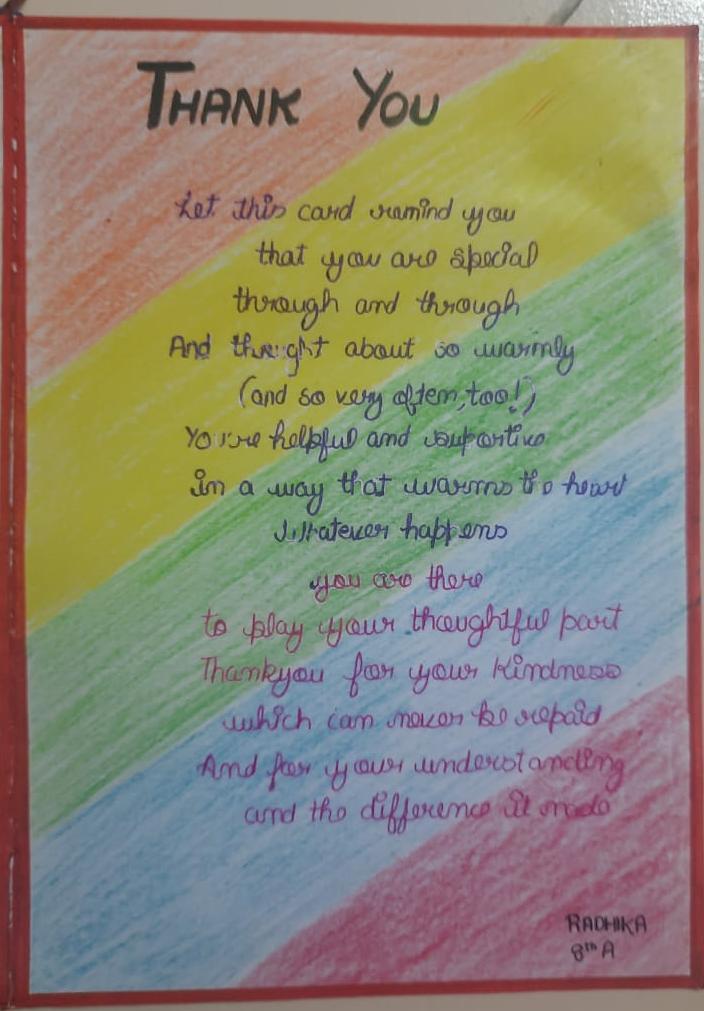 THANK YOU
Let this card remind you
that you are special
through and through
And thought about so warmly
(and so very often, too!)
You're helpful and suportive
in a way that warms the heart
Whatever happens
you are there
to play your thoughtful part
Thankyou for your Kindness
which can never be repaid
And for your understanding
and the difference it made
RADHIKA
8th A